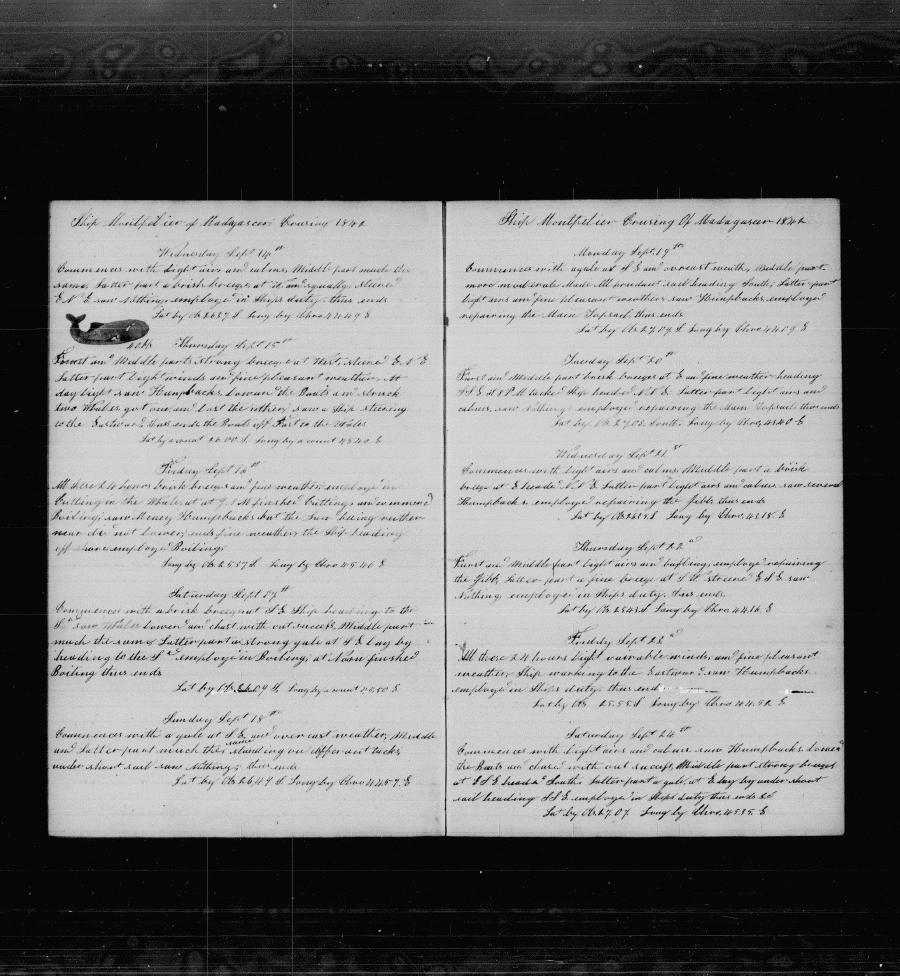 Ship Montpelier of Madagascar Crusing 1842
Wednesday Sept 14th
Commences with Light airs and calms, Middle part much the
same, Latter part a brish breeze at W and squally Steered
E N E saw nothing employed in Ships duty thus ends
Lat by Ob 26.37 S Long by Chro 44.49 E
40 bls Thursday Sept 15th
Furst and Meddle parts strong breeze at West, steered E N E
Latter part light winds and fine pleasant weather, At
day light saw Humpbacks, lowered the Boats and struck
two Whales got one, and lost the other, saw a Ship steering
to the Eastward thus ends the Boats off Fast to the Whale
Lat by account 26.00 S Long by account 45.40 E
Friday Sept 16th
All these 24 hours brish breeze and fine weather, employed in
Cutting in the Whale at at 9 P M finished Cutting and commenced
Boiling saw Meney Humpbacks but the Sun being rather
near did not lower, ends fine weather the Ship heading
off shore employed Boiling
Long by Ob 25.57 S Long by Chro 45.40 E
Saturday Sept 17th
Commences with a brish breeze at S E Ship heading to the
Sd saw Whales lowered and chast with out success, Middle part
much the same Latter part a strong gale at S E lay by
heading to the Sd employed in Boiling, at Noon finshed
Boiling thus ends
Lat by Ob 09 S, Long by account 45.50 E
Sunday Sept 18th
Commences with a gale at S E and overcast weather, Middle
and Latter part much the same standing on Opperand tacks,
under short sail saw Nothing thus ends
Lat by Ob 26.49 S Long by Chro 44.57 E
Ship Montpelier Crusing Of Madagascar 1842
Monday Sept 19th
Commences with a gale at S E and overcast weath, Meddle part
more moderate Made All prudent sail heading South, Latter part
light airs and fine pleasant weather saw Humpbacks, employed
repairing the Main Topsail thus ends
Lat by Ob 27.09 S Long by Chro 44.59 E
Tuesday Sept 20th
Furst and Meddle part brish breeze at E and fine weather heading
S S E at 8 P M tacked Ship headed N N E Latter part light airs and
calms, saw Nothing employed repairing the Main Topsail thus ends
Lat by Ob 27.02 South, Long by Chro, 45.40 E
Wednesday Sept 21st
Commences with light airs and calms, Meddle part a brish
breeze at E headed N N E Latter part light airs and calms saw several
Humpbacks employed repairing the Jibb, thus ends
Lat by Ob 26.25 S Long by Chro, 45.18 E
Thursday Sept 22d
Furst and Middle part light airs and baffling, employed repairing
the Jibb, Latter part a fine breeze at S W steered E S E saw
Nothing employed in Ships duty, thus ends
Lat by Ob 25.43 S Long by Chro 44.16 E
Friday Sept 23d
All these 24 hours light vairable winds, and fine pleasant
weather, Ship working to the Eastward saw Humpbacks
employed in Ships duty thus ends
Lat by Ob 25.55 S Long by Chro 44.52 E
Saturday Sept 24th
Commences with light airs and calms saw Humpbacks lowered
the Boats and chased with out success, Middle part strong breezes
at E S E headed South Latter part a gale at E lay by under short
sail heading S S E employed in Ships duty thus ends
Lat by Ob 27.07 Long by Chro, 45.35 E